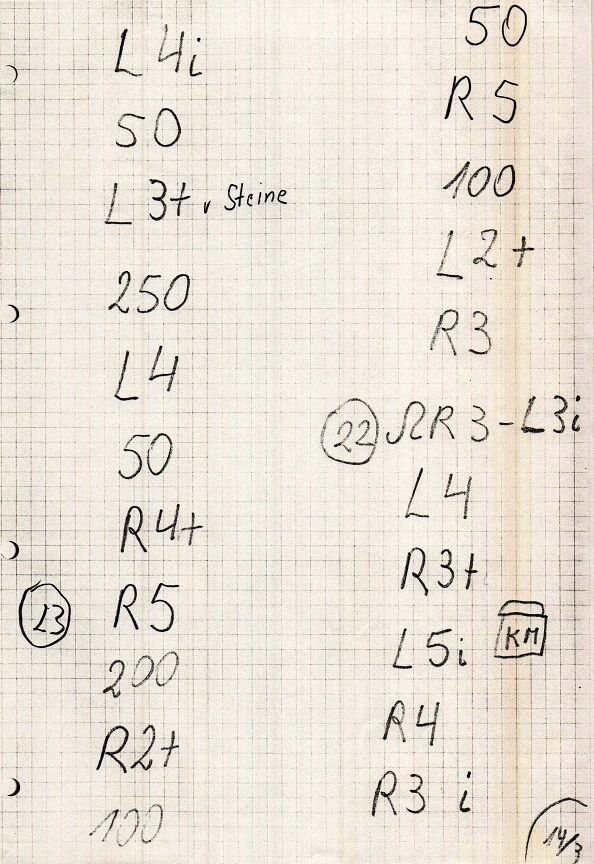 L 4i
50
L 3+ v Steine
250
L4
50
R4+
R5
200
R2+
100
50
R5
100
L2+
R3
22 ΩR3-L3i
L4
R3+
L5i KM
R4
R3 i
14/3